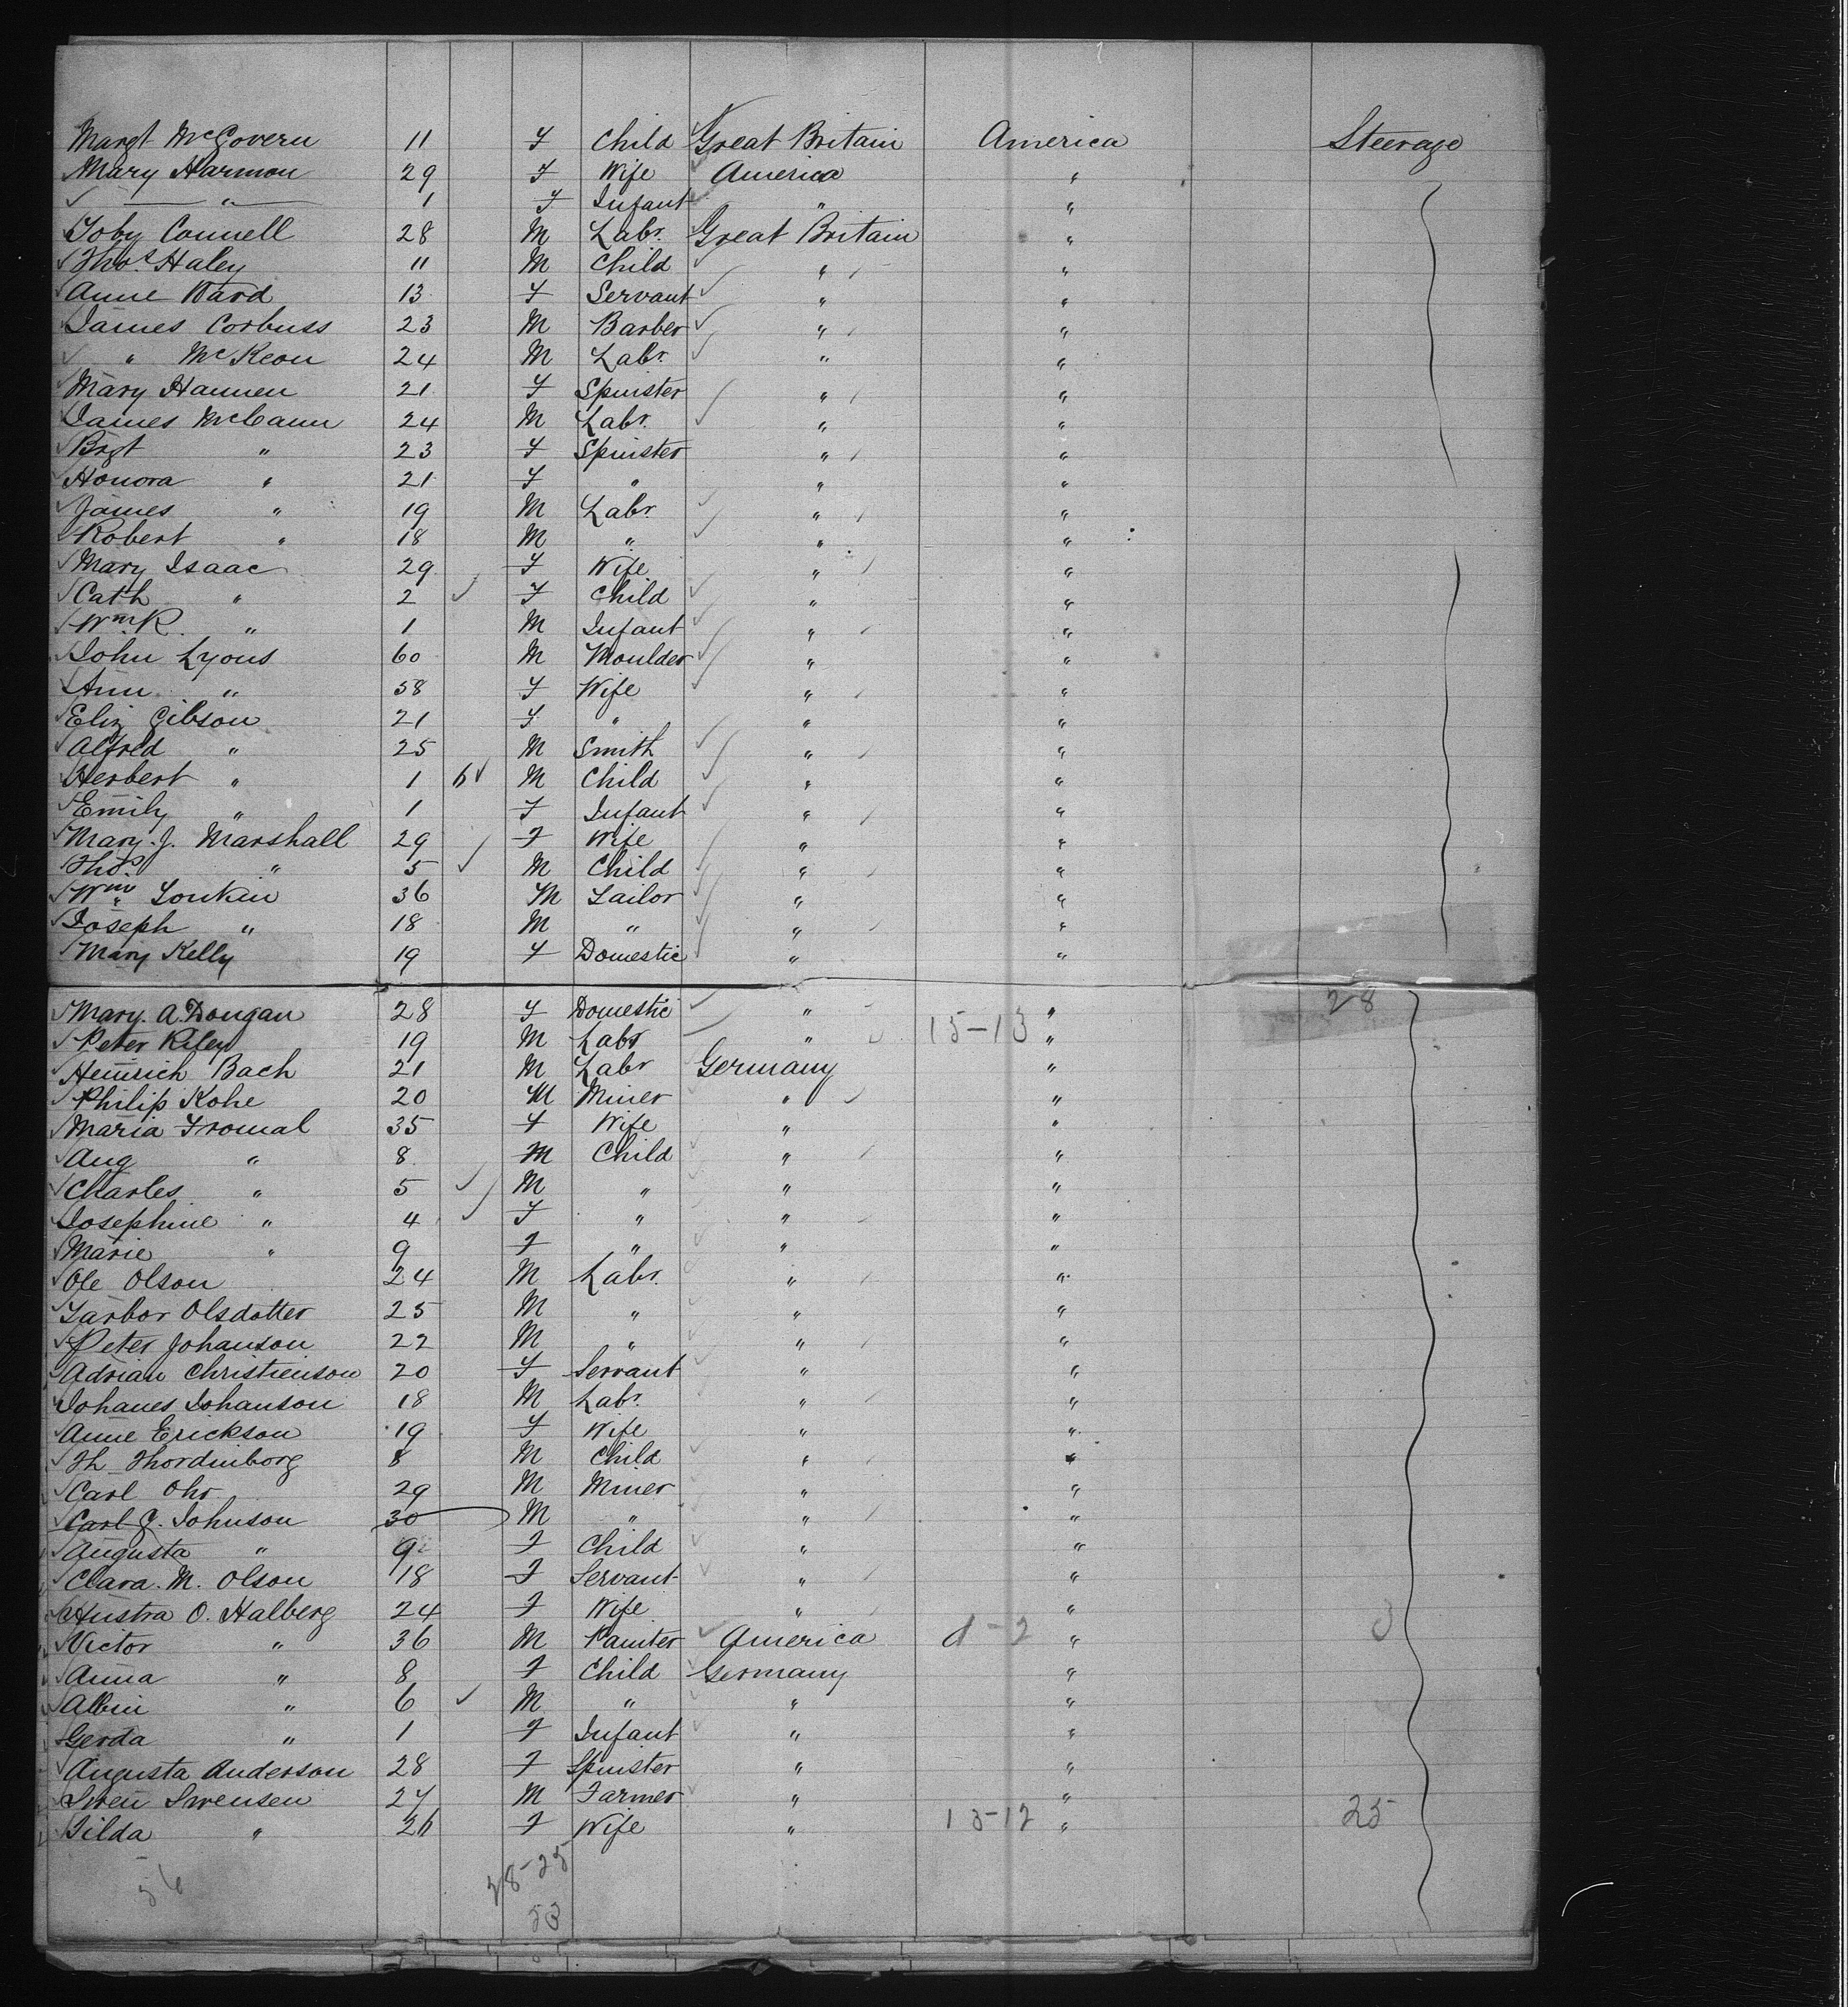 Margt McGovern 11 F Child Great Britain America Steerage
Mary Harmon 29 F Wife America "
" 1 F Infant " "
Toby Connell 28 M Labr. Great Britain "
Thos. Haley 11 M Child " "
Anne Ward 13 F Servant " "
James Corbuss 23 M Barber " "
" McKeon 24 M Labr. " "
Mary Hannen 21 F Spinster " "
James McCann 24 M Labr. " "
Brgt " 23 F Spinster " "
Honora " 21 F " " "
James " 19 M Labr. " "
Robert " 18 M " " "
Mary Isaac 29 F Wife " "
Cath " 2 F Child " "
Wm. R. " 1 M Infant " "
John Lyons 60 M Moulder " "
Ann " 58 F Wife " "
Eliz Gibson 21 F " " "
Alfred " 25 M Smith " "
Herbert " 1 M Child " "
Emily " 1 F Infant " "
Mary. J. Marshall 29 F Wife " "
Thos. " 5 M Child " "
Wm. 36 M Tailor " "
Joseph " 18 M " " "
Mary Kelly 19 F Domestic " "
Mary. A. Dougan 28 F Domestic " " 28
Peter Riley 19 M Labr " 15-13 "
Heinrich Bach 21 M Labr Germany "
Philip Kohe 20 M Miner " "
Maria Fromal 35 F Wife " "
Aug " 8 M Child " "
Charles " 5 M " " "
Josephine " 4 F " " "
Marie " 9 F " " "
Ole Olson 24 M Labr. " "
Olsdotter 25 M " " "
Peter Johanson 22 M " " "
Adrian Christienson 20 F Servant " "
Johanes Johanson 18 M Labr. " "
Anne Erickson 19 F Wife " "
Th Thordinborg 8 M Child " "
Carl Ohr 29 M Miner " "
Carl G. Johnson 30 M " " "
Augusta " 9 F Child " "
Clara. M. Olson 18 F Servant " "
O. Halberg 24 F Wife " "
Victor " 36 M Painter America "
Anna " 8 F Child Germany "
Albin " 6 M " " "
Gerda " 1 F Infant " "
Augusta Anderson 28 F Spinster " "
Swen Swensen 27 M Farmer " "
Tilda " 26 F Wife " 13-12 " 25
56 28-25
53